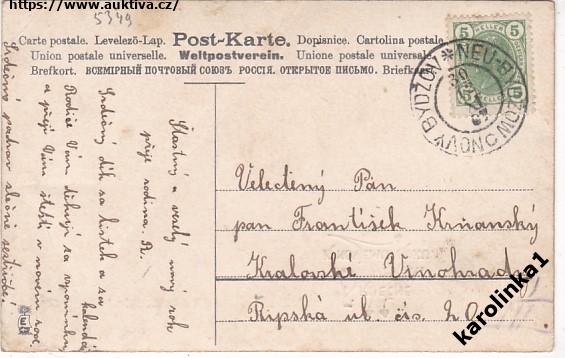 https://www.auktiva.cz/
5349
Carte postale. Levelező-Lap. Post-Karte. Dopisnice. Cartolina postale.
Union postale universelle. Weltpostverein. Unione postale universale.
Brefkort. ВСЕМІРНЫЙ ПОЧТОВЫЙ СОЮЗЪ РОССІЯ. ОТКРЫТОЕ ПИСЬМО. Briefkaart
5 HELLER 5
NEU-BIDŽOW
NOVÝ BYDŽOV
Šťastný a veselý nový rok
přeje rodina R.
Srdečný dík za lístek a za kalendář
Rodiče Vám děkují za vzpomínku
a přejí Vám štěstí v novém roce
Srdečné pozdrav slečně sestřičce!
Velectěný Pán
pan František Krňanský
Kralovské Vinohrady
Ripská ul. čís. 20
karolinka1